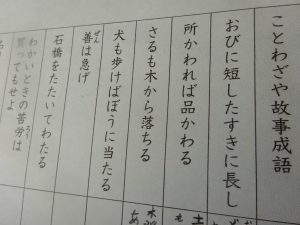 ことわざや故事成語
おびに短したすきに長し
所かわれば品かわる
さるも木から落ちる
犬も歩けばぼうに当たる
善は急げ
ぜん
石橋をたたいてわたる
わかいときの苦労は
買ってもせよ